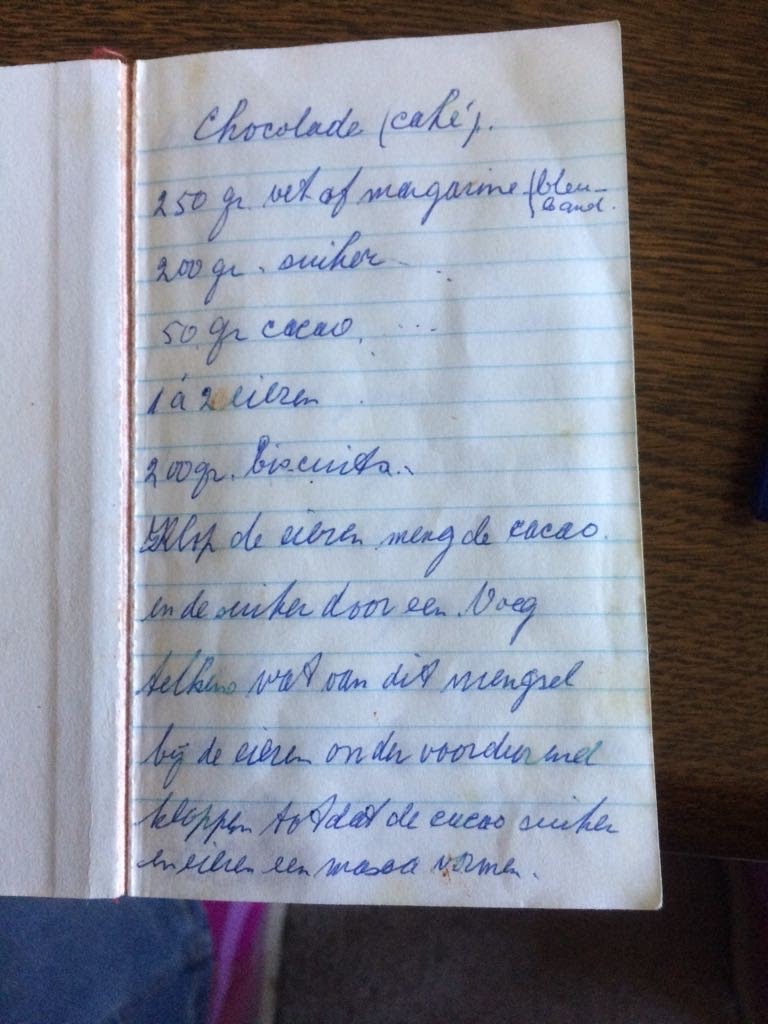 Chocolade (cake).
250 gr. vet of margarine (bleu-
band.
200 gr. suiker
50 gr cacao.
1 á 2 eieren
200 gr. biscuits.
Klop de eieren meng de cacao.
en de suiker door een Voeg
telkens wat van dit mengsel
bij de eieren onder voordurend
kloppen totdat de cacao suiker
en eieren een massa vormen.